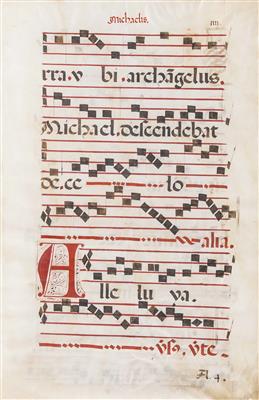 Michaelis. iiii
rra. v bi. archãgelus.
Michael. descendebat
de. ce lo
alia.
A
lle lu ya.
vs9. vte.
Fl. 4.